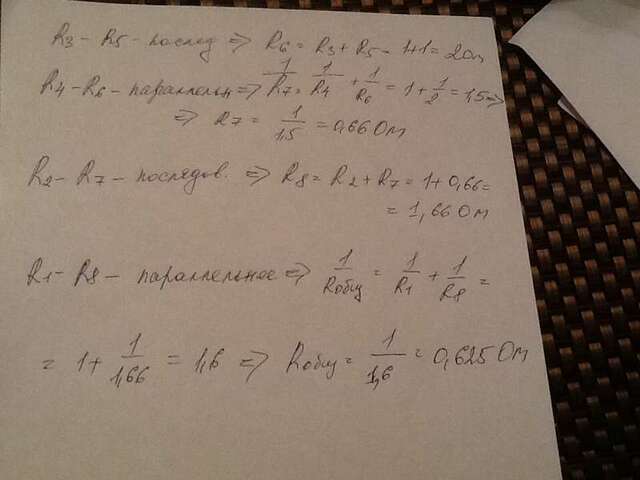 R3 – R5 – послед => R6 = R3 + R5 = 1+1 = 2Ом
R4 – R6 – параллельн => 1/R7 = 1/R4 + 1/R6 = 1 + 1/2 = 1,5 =>
=> R7 = 1/1,5 = 0,66 Ом
R2 – R7 – последов. => R8 = R2 + R7 = 1 + 0,66 =
= 1,66 Ом
R1 – R8 – параллельное => 1/Rобщ = 1/R1 + 1/R8 =
= 1 + 1/1,66 = 1,6 => Rобщ = 1/1,6 = 0,625 Ом